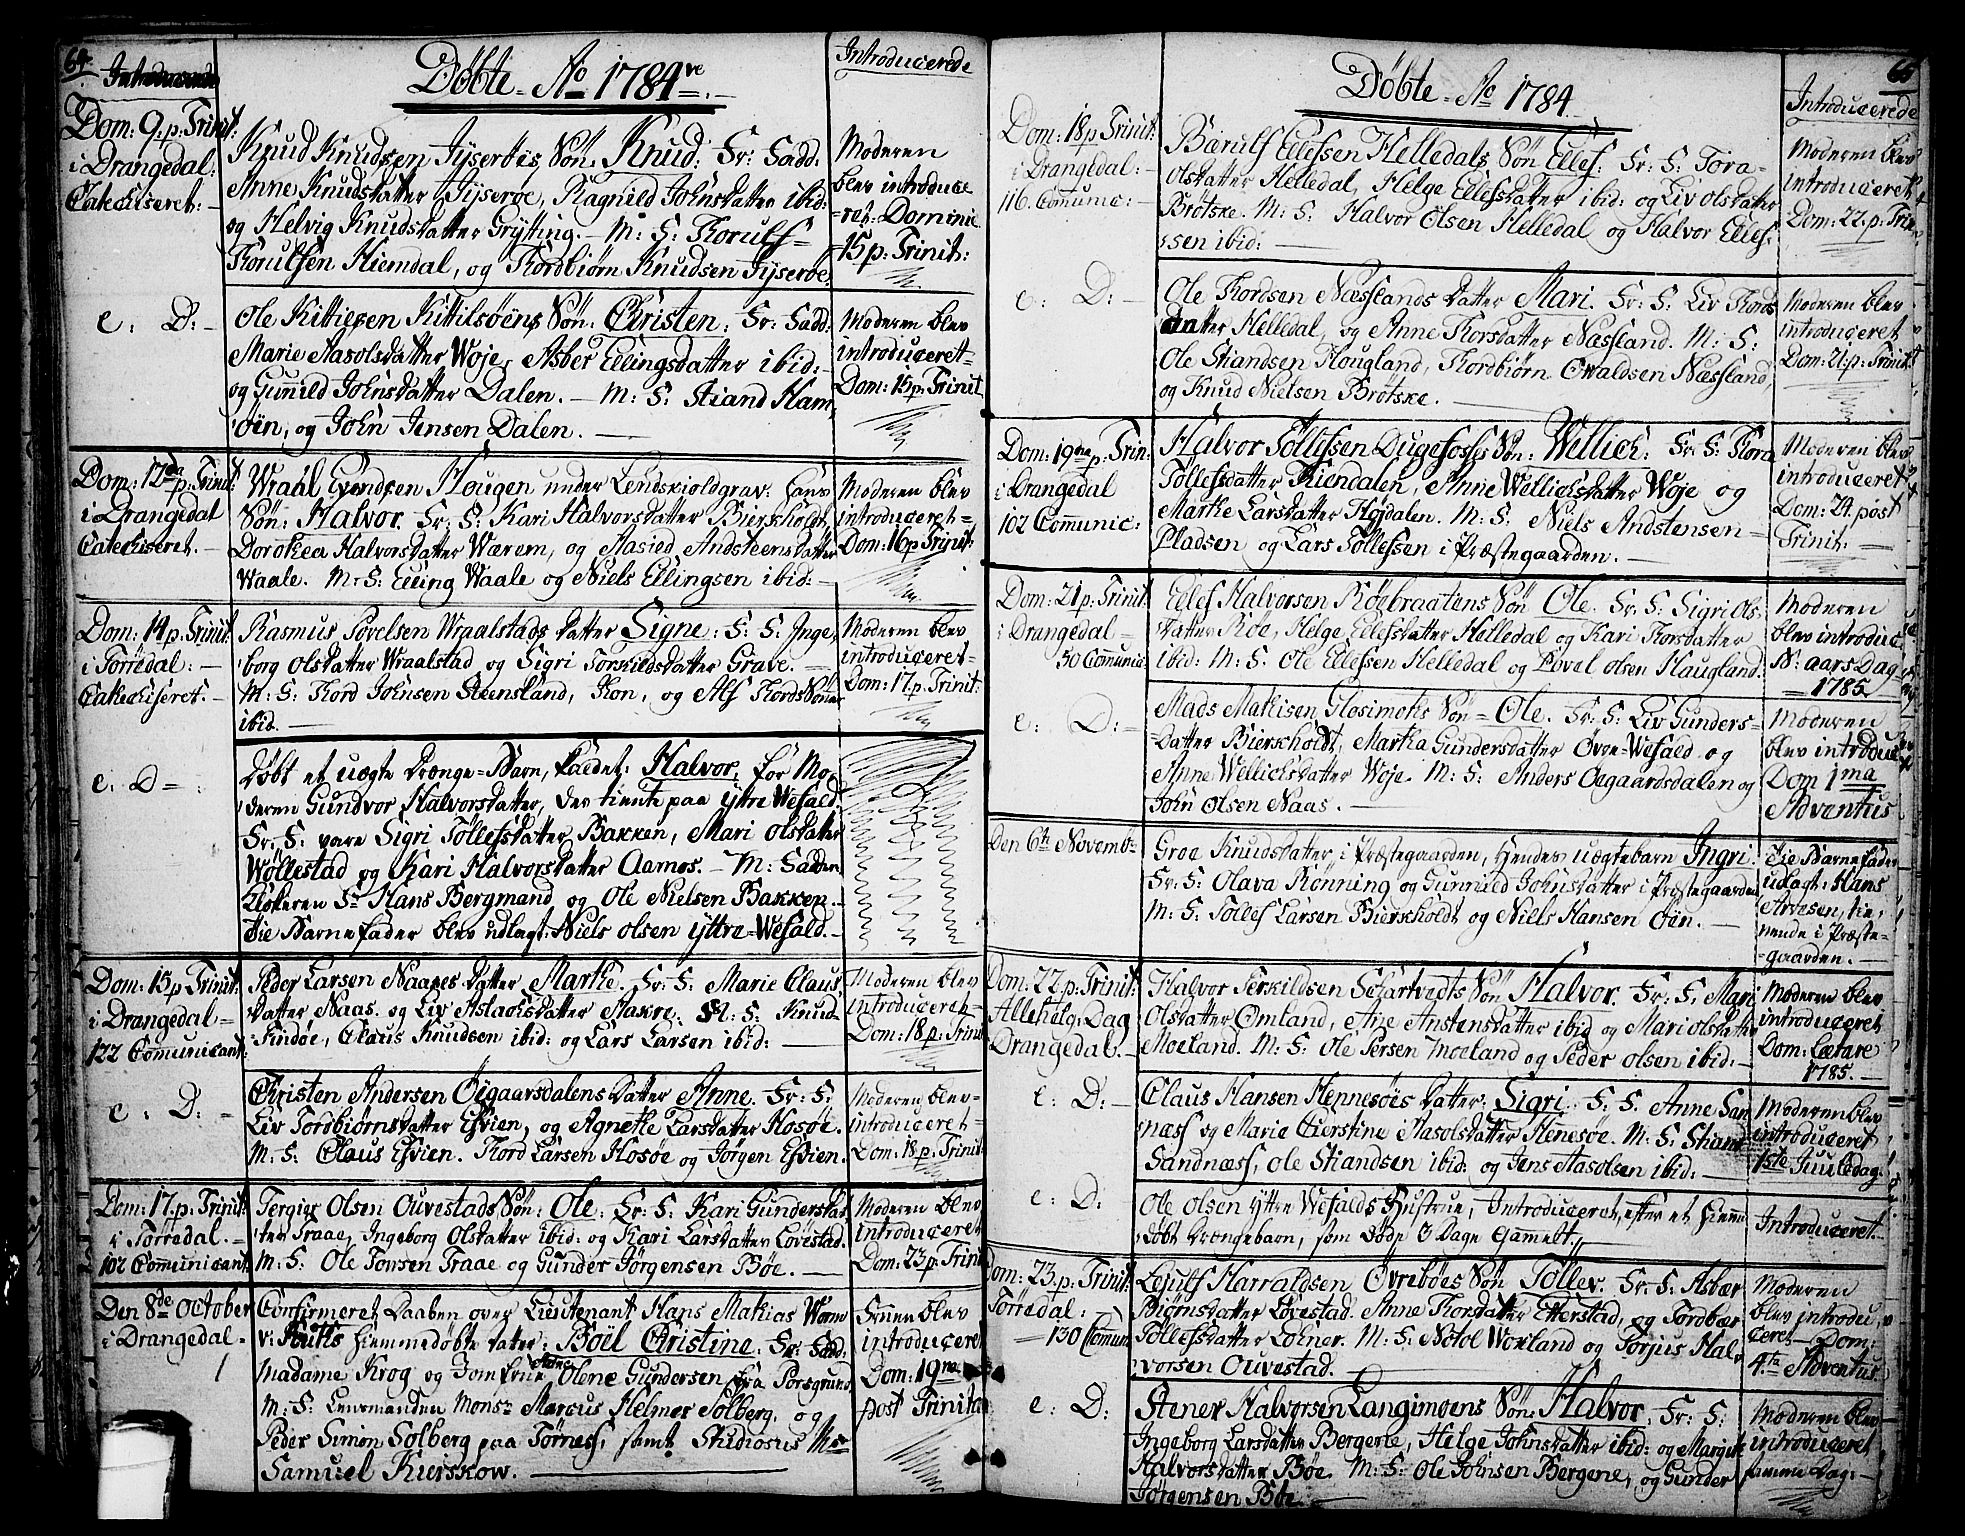 64.
Döbte Ao 1784ve
Introducerede
Dom: 9. p. Trinit:
i Drangedal:
Catechiseret:
Knud Knudsen Jyseröes Sön: Knud: Fr: Fadd:
Anne Knudsdatter Jyseröe, Ragnild Johnsdatter ibid:
og Helvig Knudsdatter Grÿtting. M: F: Torulf
Torulfsen Hiemdal, og Tordbiörn Knudsen Jyseröe
Moderen
blev introduce
ret: Dominic
15 p: Trinit:
e: D:
Ole Kittilsen Kittilsöens Sön: Christen: Fr: Fadd:
Marie Aasolsdatter Woje, Asber Ellingsdatter ibid:
og Gunild Johnsdatter Dalen. M: F: Stiand Ham
öen, og John Jensen Dalen.
Moderen blev
introduceret
Dom: 15 p: Trinit
Dom: 12da p: Trinit:
i Drangedal
Catechiseret.
Wraal Evendsen Hougen under Lendskioldgrav: hans
Sön: Halvor. Fr: F: Kari Halvorsdatter Bierkholdt,
Dorothea Halvorsdatter Wærem, og Aasied Andsteensdatter
Waale. M: F: Elling Waale og Niels Ellingsen ibid:
Moderen blev
introduceret
Dom: 16 p: Trinit:
Dom: 14 p: Trinit:
i Törredal:
Catechiseret.
Rasmus Povelsen Wraalstads datter Signe: F: F: Inge
borg Olsdatter Wraalstad og Sigri Torkildsdatter Grave.
M: F: Thord Johnsen Steensland, Jon, og Alf Thords Sönner
ibid.
Moderen blev
introduceret
Dom: 17. p: Trinit:
e: D:
Döbt et uægte Drenge-Barn, kaldet: Halvor: for Mo
deren Gundvor Halvorsdatter, der tiente paa ÿttre Wefald.
Fr: F: vare Sigri Töllefsdatter Bakken, Mari Olsdatter
Wöllestad og Kari Halvorsdatter Aamos. M: Fadder
Klokeren Sr Hans Bergmand og Ole Nielsen Bakken.
Tie Barne fader blev udlagt: Niels Olsen ÿttre Wefald.
Dom: 15 p Trinit:
i Drangedal
122 Communicant:
Peder Larsen Naases datter Marthe. Fr: F: Marie Claus
datter Naas. og Liv Aslachsdatter Aasroe. M: F: Knud
Findöe, Claus Knudsen ibid: og Lars Larsen ibid:
Moderen blev
introduceret
Dom: 18 p: Trinit
e: D:
Christen Andersen Öigaarsdalens datter Anne. Fr: F:
Liv Tordbiörnsdatter Efvien, og Agnethe Larsdatter Hosöe.
M: F: Claus Efvien. Thord Larsen Hosöe og Jörgen Efvien.
Moderen blev
introduceret
Dom: 18. p: Trinit:
Dom: 17. p: Trinit:
i Törredal
102 Communicant:
Tergier Olsen Ouvestads Sön: Ole. Fr: F: Kari Gundersdat
ter Traae, Ingeborg Olsdatter ibid: og Kari Larsdatter Lövestad.
M: F: Ole Tovsen Traae og Gunder Jörgensen Böe.
Moderen blev
introduceret
Dom: 23. p: Trinit
Den 8de October
i Drangedal
Confirmeret Daaben over Lieutenant Hans Mathias Worm
hiemmedöbte dater: Boel Christine. Fr: Fadd:
Madame Krog og Jomfrue Olene Gundersen fra Porsgrund
M: F: Lensmanden Monsr Marcus Helmer Solberg, og
Peder Simon Solberg paa Törnes, samt Studiosus Mr
Samuel Kierskow.
Fruen blev
introduceret
Dom: 19na
post Trinitat
65
Döbte Ao 1784
Introducerede
Dom: 18 p Trinit:
i Drangedal:
116. Comunic:
Barulf Ellefsen Helledals Sön Ellef. Fr: F: Tora
Olsdatter Helledal, Helge Ellefsdatter ibid: og Liv Olsdatter
Brötske. M: F: Halvor Olsen Helledal og Halvor Ellef
sen ibid:
Moderen blev
introduceret
Dom: 22. p: Trin
e: D:
Ole Thordsen Næsslands datter Mari. Fr: F: Liv Thords
datter Helledal, og Anne Thorsdatter Næssland. M: F:
Ole Stiandsen Hougland, Tordbiörn Owaldsen Næssland
og Knud Nielsen Brötske.
Moderen blev
introduceret
Dom: 21. p: Trinit
Dom: 19na p: Trin:
i Drangedal
102 Communic:
Halvor Töllefsen Dugefosses Sön: Wellich: Fr: F: Thora
Töllefsdatter Kiendalen, Anne Wellichsdatter Woje og
Marthe Larsdatter Höjdalen. M: F: Niels Andstensen
Pladsen og Lars Töllefsen i Præstegaarden.
Moderen blev
introduceret
Dom: 24. post
Trinit:
Dom: 21 p: Trinit
i Drangedal
50 Communic
Ellef Halvorsen Böebraatens Sön Ole. Fr: F: Sigri Ols
datter Böe, Helge Ellefsdatter Helledal og Kari Thorsdatter
ibid: M: F: Ole Ellefsen Helledal og Povel Olsen Haugland.
Moderen
blev introduc
N: aars Dag
1785
e: D:
Mads Mathisen Glosimots Sön Ole. Fr: F: Liv Gunders
datter Bierkholdt, Martha Gundersdatter Övre-Wefald og
Anne Wellichsdatter Woje. M: F: Anders Oegaardsdalen og
John Olsen Naas.
Moderen
blev introduc
Dom 1ma
Adventus
Den 6te Novembr
Groe Knudsdatter, i Præstegaarden, hendes uægtebarn Ingri.
Fr: F: Olava Rönning og Gunnild Johnsdatter i Præstegaarden
M: F: Tollef Larsen Bierkholdt og Niels Hansen Öen.
Tie Barnefader
udlagt: Hans
Arvesen, tie
nende i Præste
gaarden.
Dom: 22. p: Trinit:
Allehelg: Dag
Drangedal.
Halvor Terkildsen Schartvedts Sön Halvor. Fr: F: Mari
Olsdatter Omland, Ase Anstensdatter ibid og Mari Olsdatter
Moeland. M: F: Ole Persen Moeland og Peder Olsen ibid:
Moderen blev
introduceret
Dom: Lætare
1785.
e: D:
Claus Hansen Hennesöes datter: Sigri. F: F. Anne San
næss og Marie Cierstine Aasolsdatter Henesöe. M: F: Stian
Sandnæss, Ole Stiandsen ibid: og Jens Aasolsen ibid:
Moderen blev
introduceret
1ste Juuledag:
e: D:
Ole Olsen ÿttre Wefalds Hustrue, Introduceret, efter et hiemme
döbt Drengebarn, som döde 3 Dage gammelt.
Introduceret.
Dom: 23. p: Trinit:
Törredal:
130 Comun
Lejulf Harraldsen Övreböes Sön Töllev. Fr: F: Asbær
Biörnsdatter Lövestad. Anne Thorsdatter Etterstad, og Tordbær
Töllefsdatter Lolner. M: F: Notol Woxland og Torjus Hal
vorsen Ouvestad.
Moderen
blev introdu
ceret Dom:
4ta Adventus
e: D:
Stener Halvorsen Langimoens Sön: Halvor. Fr: F:
Ingeborg Larsdatter Bergene, Helge Johnsdatter ibid: og Margit
Halvorsdatter Böe. M: F: Ole Johnsen Bergene, og Gunder
Jörgensen Böe.
Moderen blev
introduceret
samme Dag: